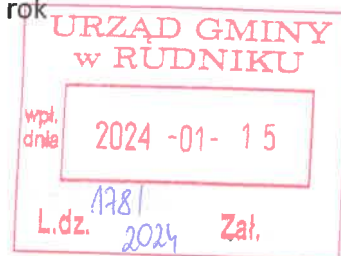 rok
URZĄD GMINY
w RUDNIKU
wpł.
dnia
2024 -01- 15
L.dz. 178/
2024 Zał.